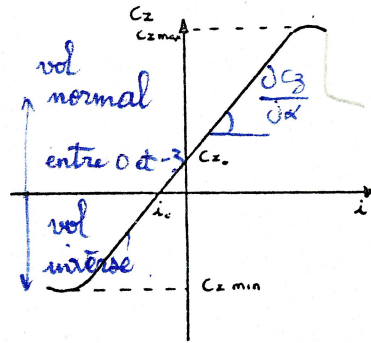 Cz
Cz max
vol
normal
∂Cz
∂α
entre 0 et -3
Czo
io
i
vol
inversé
Cz min